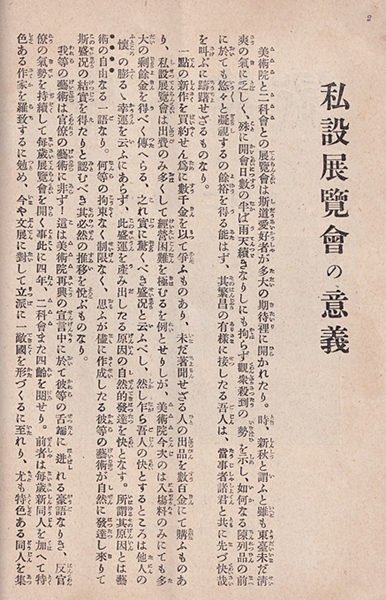 2
私設展覽會の意義
美術院と二科會との展覽會は斯道愛好者が多大の期待裡に開かれたり。時、新秋と謂ふと雖も東臺未だ淸
爽の氣に乏しく、殊に開會日數の半ば雨天續きなりしにも拘らず觀衆殺到の勢を示し、如何なる陳列品の前
に於ても悠々と凝視するの餘裕を得る能はず、其繁昌の有樣に接したる吾人は、當事者諸君と共に先づ快哉
を叫ぶに躊躇せざるものなり。
一點の新作を買約せん爲に數千金を以て爭ふものあり、未だ著聞せざる人の出品を數百金にて購ふものあ
り、私設展覽會は出費のみ多くして經營困難を極むるを例とせりしが、美術院今次のは入塲料のみにても多
大の剩餘金を得べく傳へらる、之れ實に驚くべき盛況と云ふべし、然し乍ら吾人の快とするところは他人の
懷の膨るゝ幸運を云ふにあらず、此盛運を產み出したる原因の自然的發達を快となす。所謂其原因とは藝
術の自由なる一語なり。何等の拘束なく、制限なく、思ふが儘に作成したる彼等の藝術が自然に發達し來りて
斯盛况の結實を得たりと認むべき其必然の推移を悅ぶものなり。
我等の藝術は官僚の藝術に非ず！這は美術院再興の宣言中に於て彼等の舌端に迸れる豪語なりき、反官
僚の氣勢を持續して每歲展覽會を開く事此に四年、二科會また四齡を閱せり。前者は每歲新同人を加へて特
色ある作家を羅致するに勉め、今や文展に對して立派に一敵國を形づくるに至れり、尤も特色ある同人を集